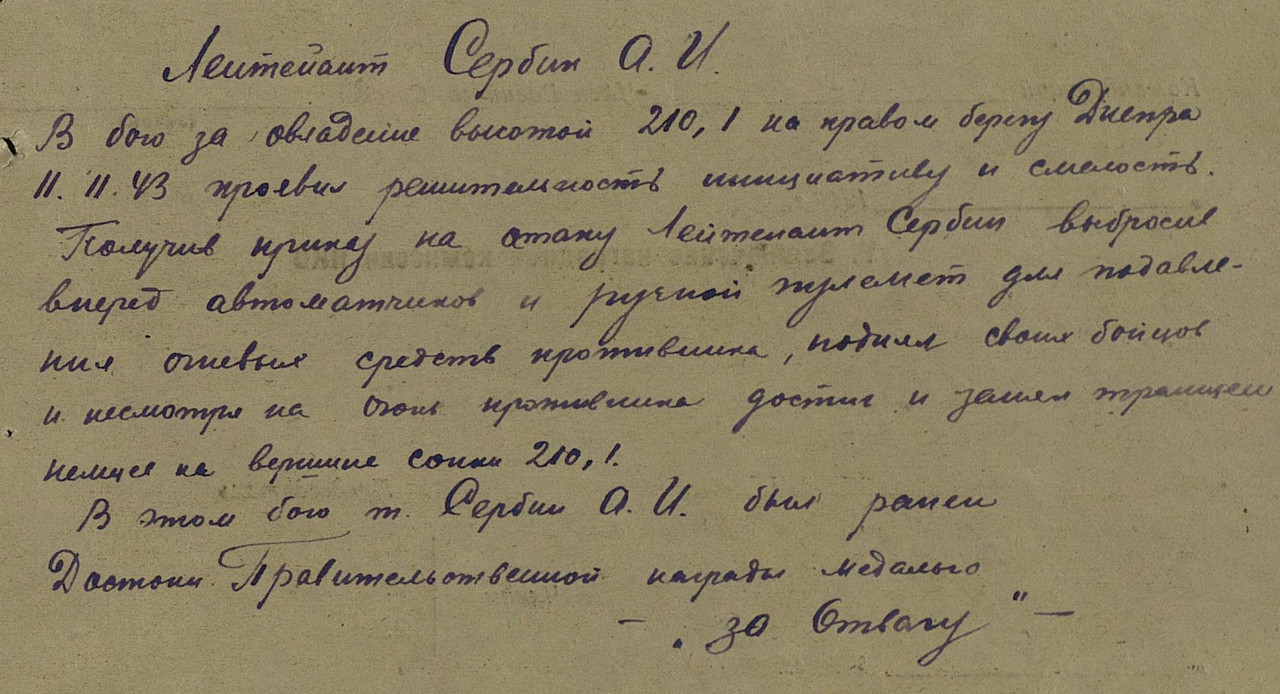 Лейтенант Сербин А. И.
В бою за овладение высотой 210,1 на правом берегу Днепра
11. 11. 43 проявил решительность инициативу и смелость.
Получив приказ на атаку Лейтенант Сербин выбросил
вперед автоматчиков и ручной пулемет для подавле-
ния огневых средств противника, поднял своих бойцов
и несмотря на огонь противника достиг и занял траншеи
немцев на вершине сопки 210,1.
В этом бою т. Сербин А. И. был ранен
Достоин Правительственной награды медалью
— „За Отвагу" —